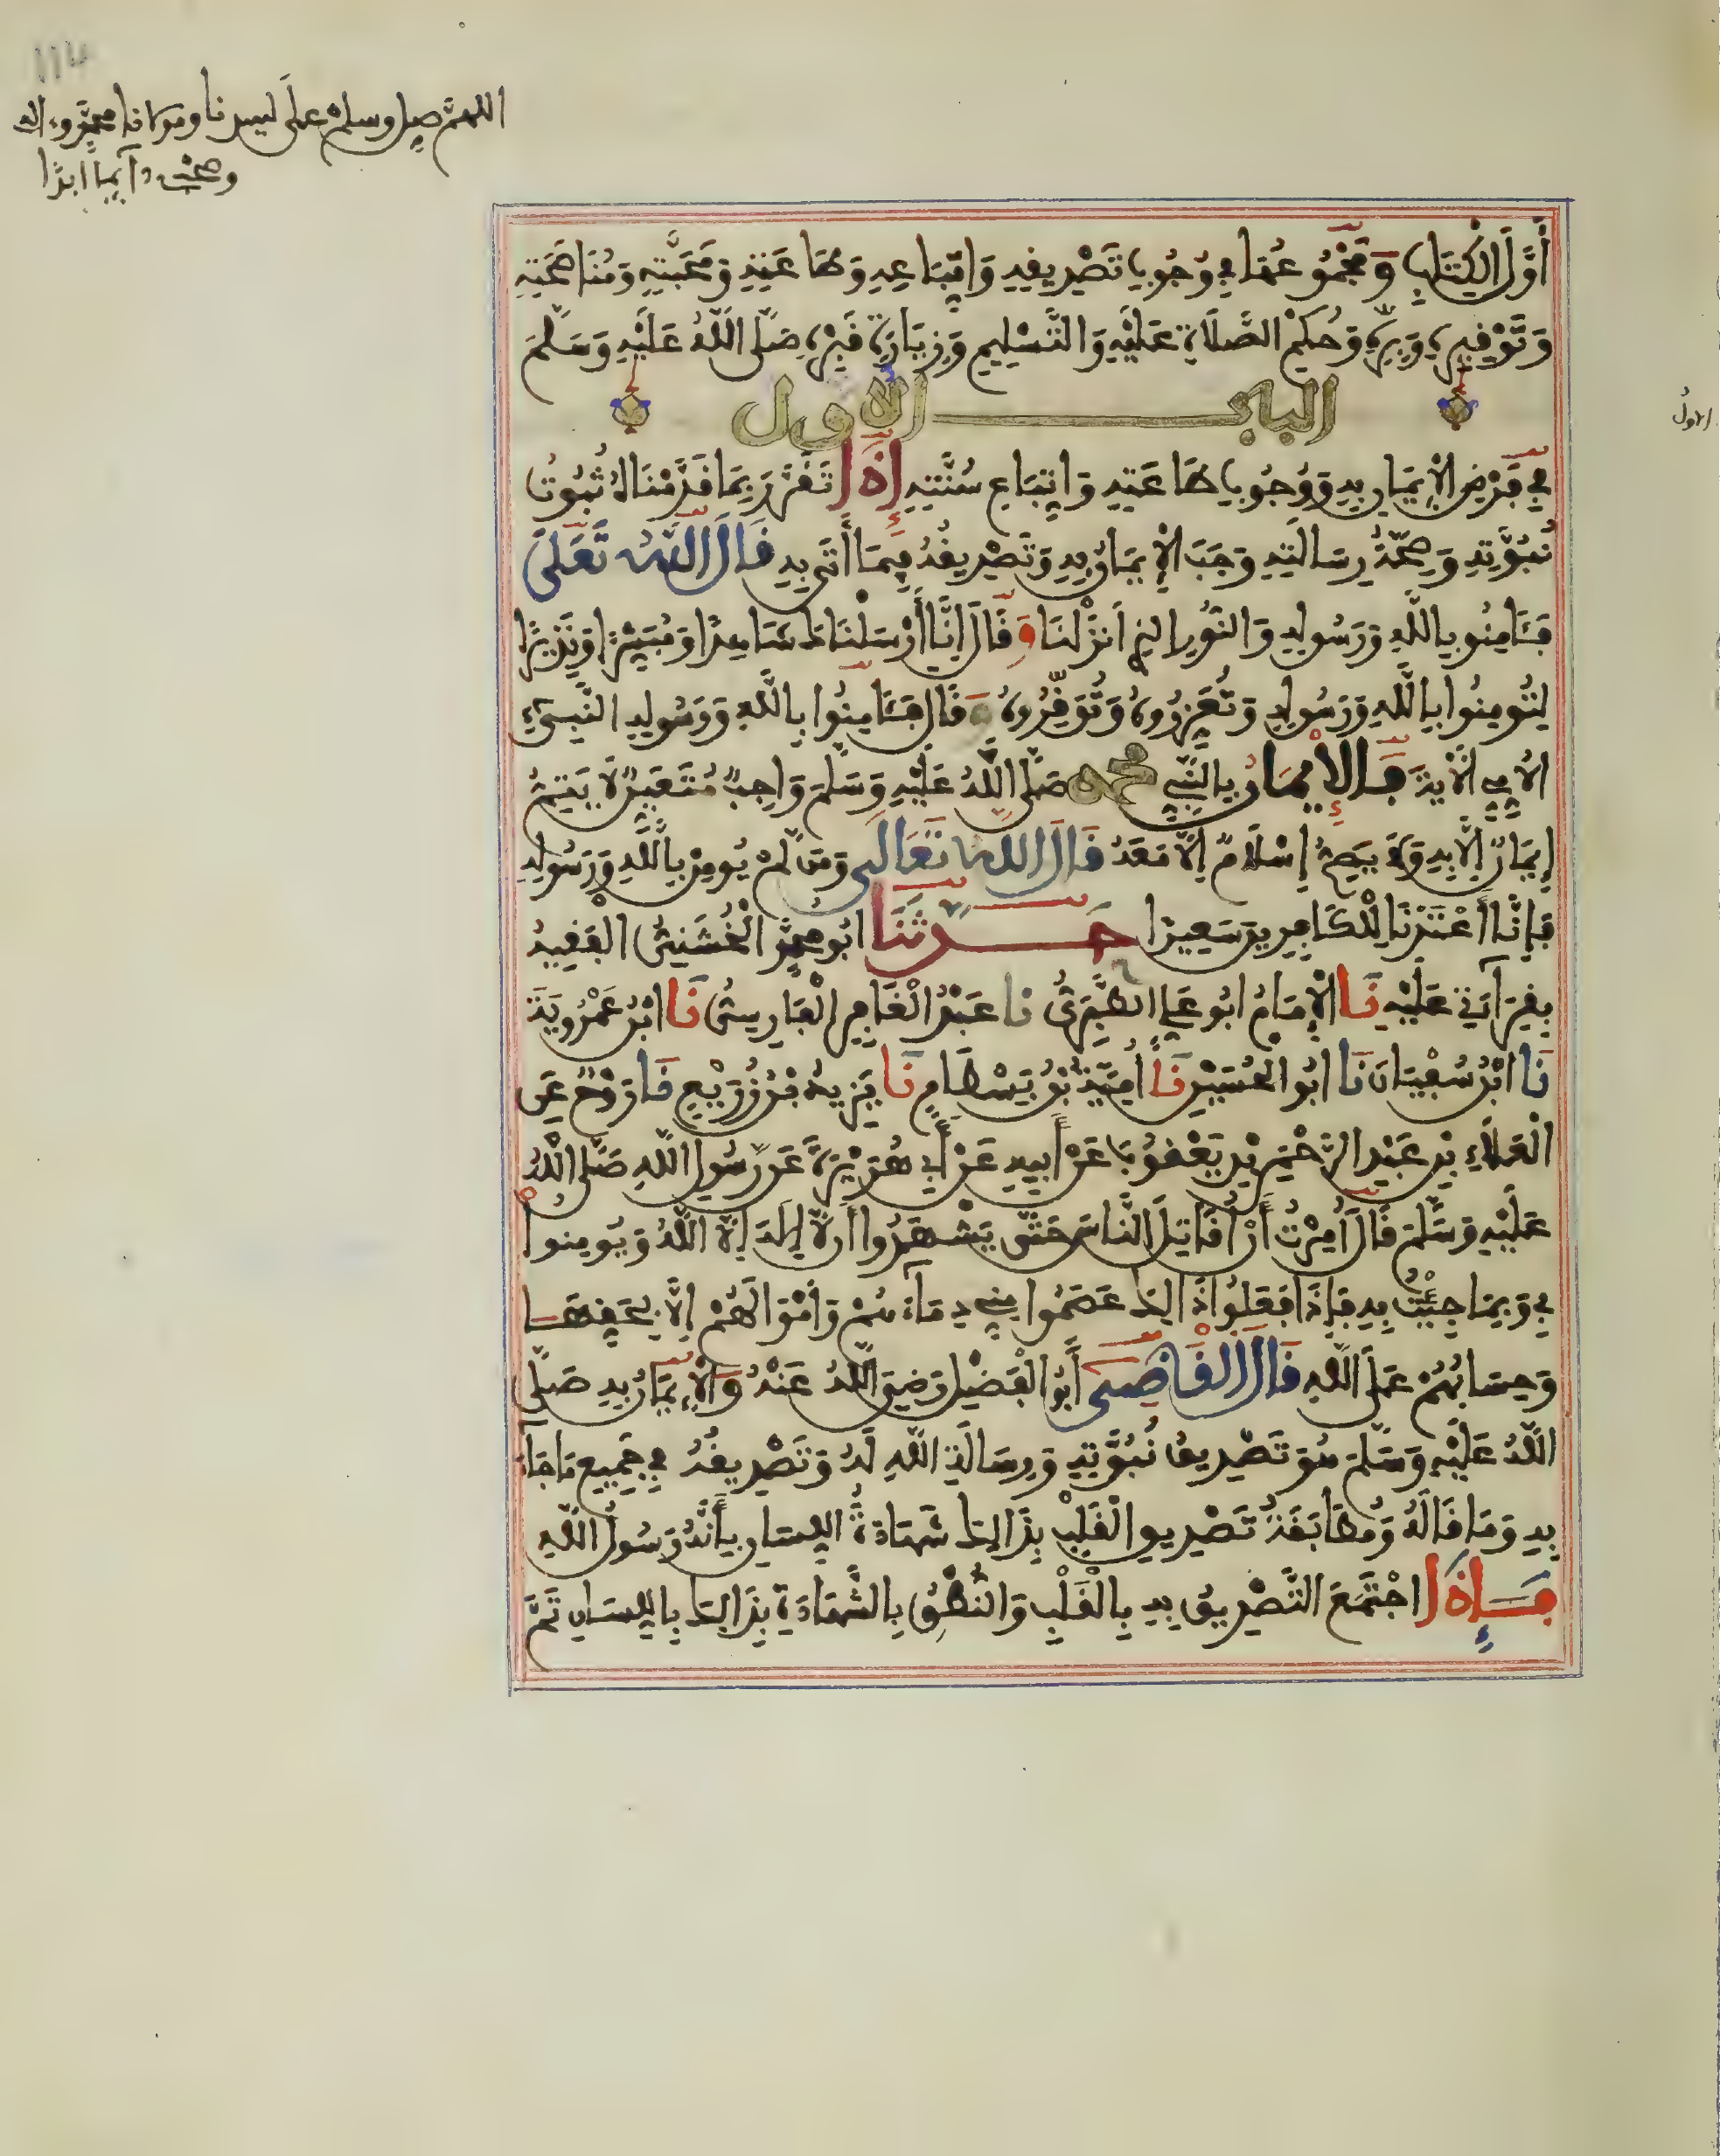 ١١٤
اللهم صل وسلم على سيدنا ومولانا محمد وءاله
وصحبه دآيما ابدًا
أَوَّلَ الْكِتَابِ وَمَجْمُوعُهَا فِي وُجُوبِ تَصْدِيقِهِ وَاتِّبَاعِهِ وَطَاعَتِهِ وَمَحَبَّتِهِ وَمُنَاصَحَتِهِ
وَتَوْقِيرِهِ وَبِرِّهِ وَحُكْمِ الصَّلَاةِ عَلَيْهِ وَالتَّسْلِيمِ وَزِيَارَةِ قَبْرِهِ صَلَّى اللَّهُ عَلَيْهِ وَسَلَّمَ
الباب الأول
الاول
فِي فَرْضِ الْإِيمَانِ بِهِ وَوُجُوبِ طَاعَتِهِ وَاتِّبَاعِ سُنَّتِهِ إِذَا تَقَرَّرَ بِمَا قَدَّمْنَاهُ ثُبُوتُ
نُبُوَّتِهِ وَصِحَّةُ رِسَالَتِهِ وَجَبَ الْإِيمَانُ بِهِ وَتَصْدِيقُهُ فِيمَا أَتَى بِهِ قَالَ اللَّهُ تَعَلَى
فَـَٔامِنُو بِاللَّهِ وَرَسُولِهِ وَالنُّورِ الذِي أَنزَلْنَا وَقَالَ إِنَّا أَرْسَلْنَاكَ شَاهِدًا وَمُبَشِّرًا وَنَذِيرًا
لِتُومِنُوا بِاللَّهِ وَرَسُولِهِ وَتُعَزِّرُوهُ وَتُوَقِّرُوهُ وَقَالَ فَـَٔامِنُوا بِاللَّهِ وَرَسُولِهِ النَّبِيِّ
الْأُمِّيِّ الْأَيَةَ فَالْإِيمَانُ بِالنَّبِيِّ محمد صَلَّى اللَّهُ عَلَيْهِ وَسَلَّمَ وَاجِبٌ مُتَعَيِّنٌ لَا يَتِمُّ
إِيمَانٌ إِلَّا بِهِ وَلَا يَصِحُّ إِسْلَامٌ إِلَّا مَعَهُ قَالَ اللَّهُ تَعَالَى وَمَن لَّمْ يُومِنْ بِاللَّهِ وَرَسُولِهِ
فَإِنَّا أَعْتَدْنَا لِلْكَافِرِينَ سَعِيرًا حَدَّثَنَا أَبُو مُحَمَّدٍ الْخُشَنِيُّ الْفَقِيهُ
بِقِرَآءَتِي عَلَيْهِ نَا الْإِمَامُ أَبُو عَلِيٍّ الطَّبَرِيُّ نا عَبْدُ الْغَافِرِ الْفَارِسِيُّ نَا ابْنُ عَمْرُويَةَ
نَا ابْنُ سُفْيَانَ نَا أَبُو الْحُسَيْنِ نَا أُمَيَّةُ بْنُ بَسْطَامٍ نَا يَزِيدُ بْنُ زُرَيْعٍ نَا رَوْحٌ عَنِ
الْعَلَاءِ بْنِ عَبْدِ الرَّحْمَنِ بْنِ يَعْقُوبَ عَنْ أَبِيهِ عَنْ أَبِي هُرَيْرَةَ عَن رَّسُولِ اللَّهِ صَلَّى اللَّهُ
عَلَيْهِ وَسَلَّمَ قَالَ أُمِرْتُ أَنْ أُقَاتِلَ النَّاسَ حَتَّى يَشْهَدُوا أَن لَّا إِلَهَ إِلَّا اللَّهُ وَيُومِنُوا
بِي وَبِمَا جِيْتُ بِهِ فَإِذَا فَعَلُوا ذَالِكَ عَصَمُوا مِنِّي دِمَآءَهُمْ وَأَمْوَالَهُمْ إِلَّا بِحَقِّهَا
وَحِسَابُهُمْ عَلَى اللَّهِ قَالَ الْقَاضِي أَبُو الْفَضْلِ رَضِيَ اللَّهُ عَنْهُ وَالْإِيمَانُ بِهِ صَلَّى
اللَّهُ عَلَيْهِ وَسَلَّمَ هُوَ تَصْدِيقُ نُبُوَّتِهِ وَرِسَالَةِ اللَّهِ لَهُ وَتَصْدِيقُهُ فِي جَمِيعِ مَا جَآءَ
بِهِ وَمَا قَالَهُ وَمُطَابَقَةُ تَصْدِيقِ الْقَلْبِ بِذَالِكَ شَهَادَةُ اللِّسَانِ بِأَنَّهُ رَسُولُ اللَّهِ
فَإِذَا اجْتَمَعَ التَّصْدِيقُ بِهِ بِالْقَلْبِ وَالنُّطْقُ بِالشَّهَادَةِ بِذَالِكَ بِاللِّسَانِ تَمَّ